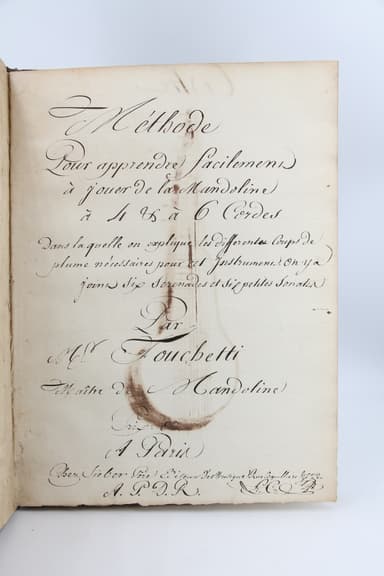 Méthode
Pour apprendre facilement
à jouer de la Mandoline
à 4 & à 6 Cordes
Dans laquelle on explique les differents Coups de
plume nécessaires pour cet Instrument On y a
joint Six Serenades et Six petites Sonates
Par
Mr. Fouchetti
Maître de Mandoline
A Paris
Chez Sieber
A. P. D. R.